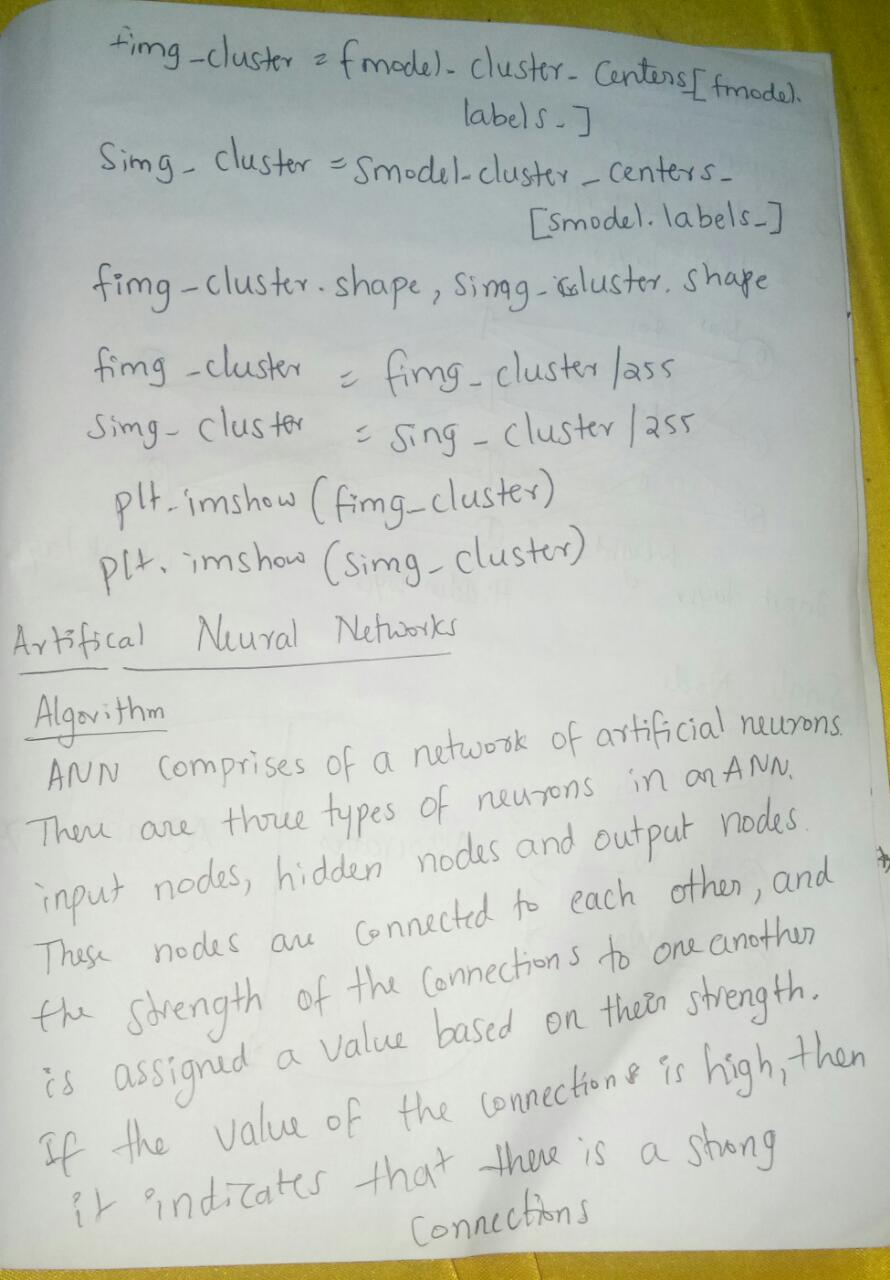 fimg_cluster = fmodel. cluster_centers[fmodel.
labels_]
Simg_cluster = Smodel.cluster_centers_
[smodel.labels_]
fimg_cluster.shape, Simg_cluster.shape
fimg_cluster = fimg_cluster/255
Simg_cluster = Sing_cluster/255
plt.imshow(fimg_cluster)
plt.imshow(simg_cluster)
Artifical Neural Networks
Algorithm
ANN Comprises of a network of artificial neurons.
There are three types of neurons in an ANN.
input nodes, hidden nodes and output nodes.
These nodes are connected to each other, and
the strength of the connections to one another
is assigned a value based on their strength.
If the value of the connections is high, then
it indicates that there is a strong
Connections